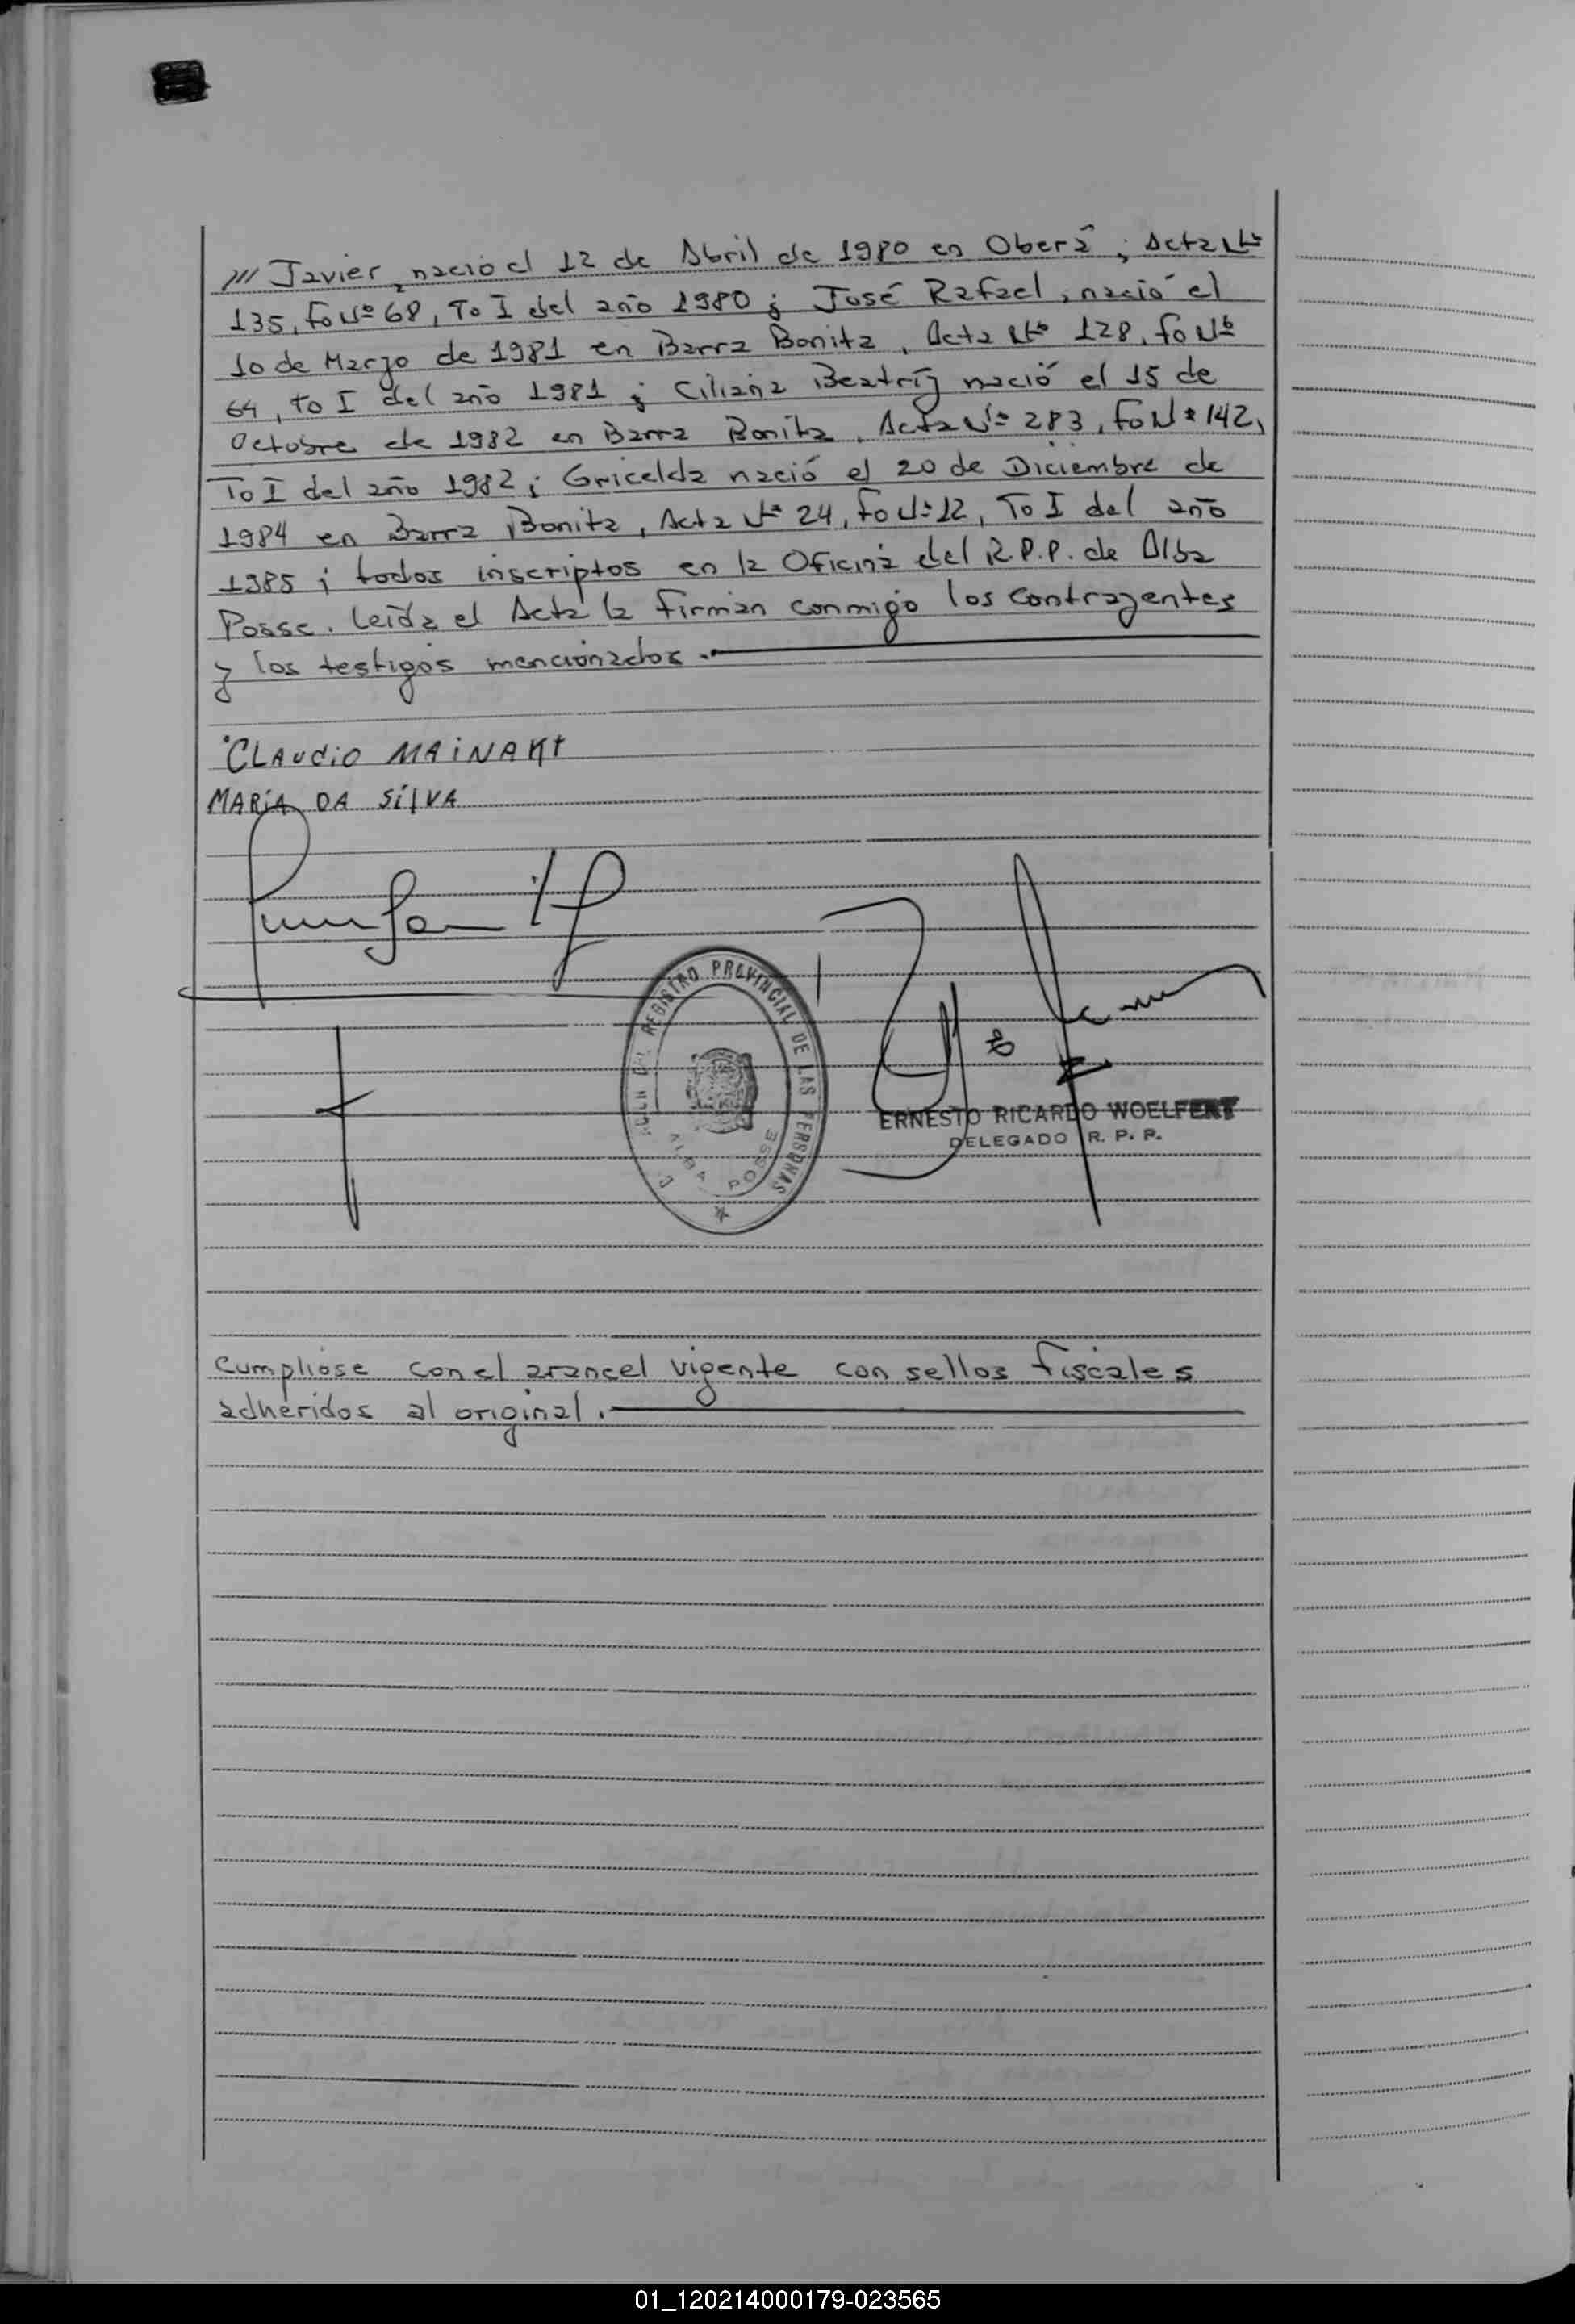 /// Javier, nació el 12 de Abril de 1980 en Oberá, Acta Nº
135, Fo Nº 68, To I del año 1980; José Rafael, nació el
10 de Marzo de 1981 en Barra Bonita, Acta Nº 128, fo Nº
64, to I del año 1981; Ciliana Beatríz nació el 15 de
Octubre de 1982 en Barra Bonita, Acta Nº 283, Fo Nº 142,
To I del año 1982; Gricelda nació el 20 de Diciembre de
1984 en Barra Bonita, Acta Nº 24, Fo Nº 12, To I del año
1985; todos inscriptos en la Oficina del R.P.P. de Alba
Posse. Leída el Acta la firman conmigo los contrayentes
y los testigos mencionados.
CLAUDIO MAINAKt
MARIA DA SILVA
REGISTRO PROVINCIAL DE LAS PERSONAS
ALBA POSSE
ERNESTO RICARDO WOELFERT
DELEGADO R. P. P.
Cumplióse con el arancel vigente con sellos fiscales
adheridos al original.
01_120214000179-023565